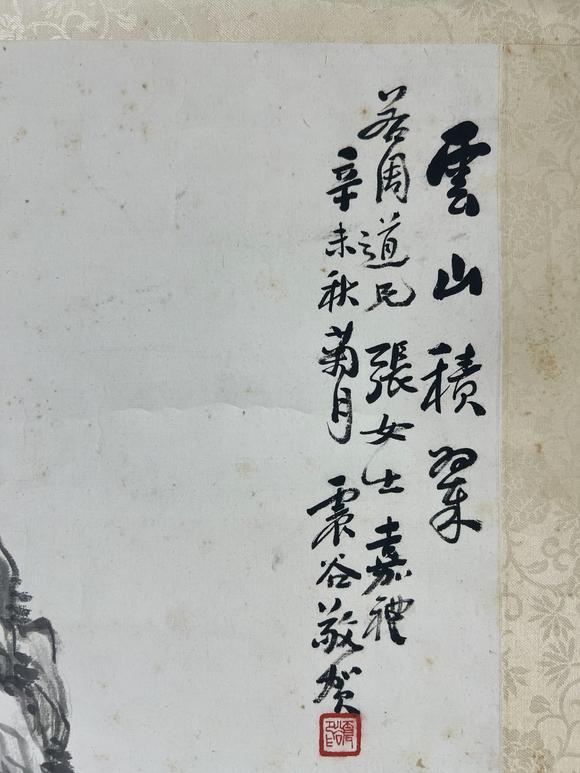 雲山積翠
若周道兄張女士嘉禮
辛未秋菊月震谷敬賀